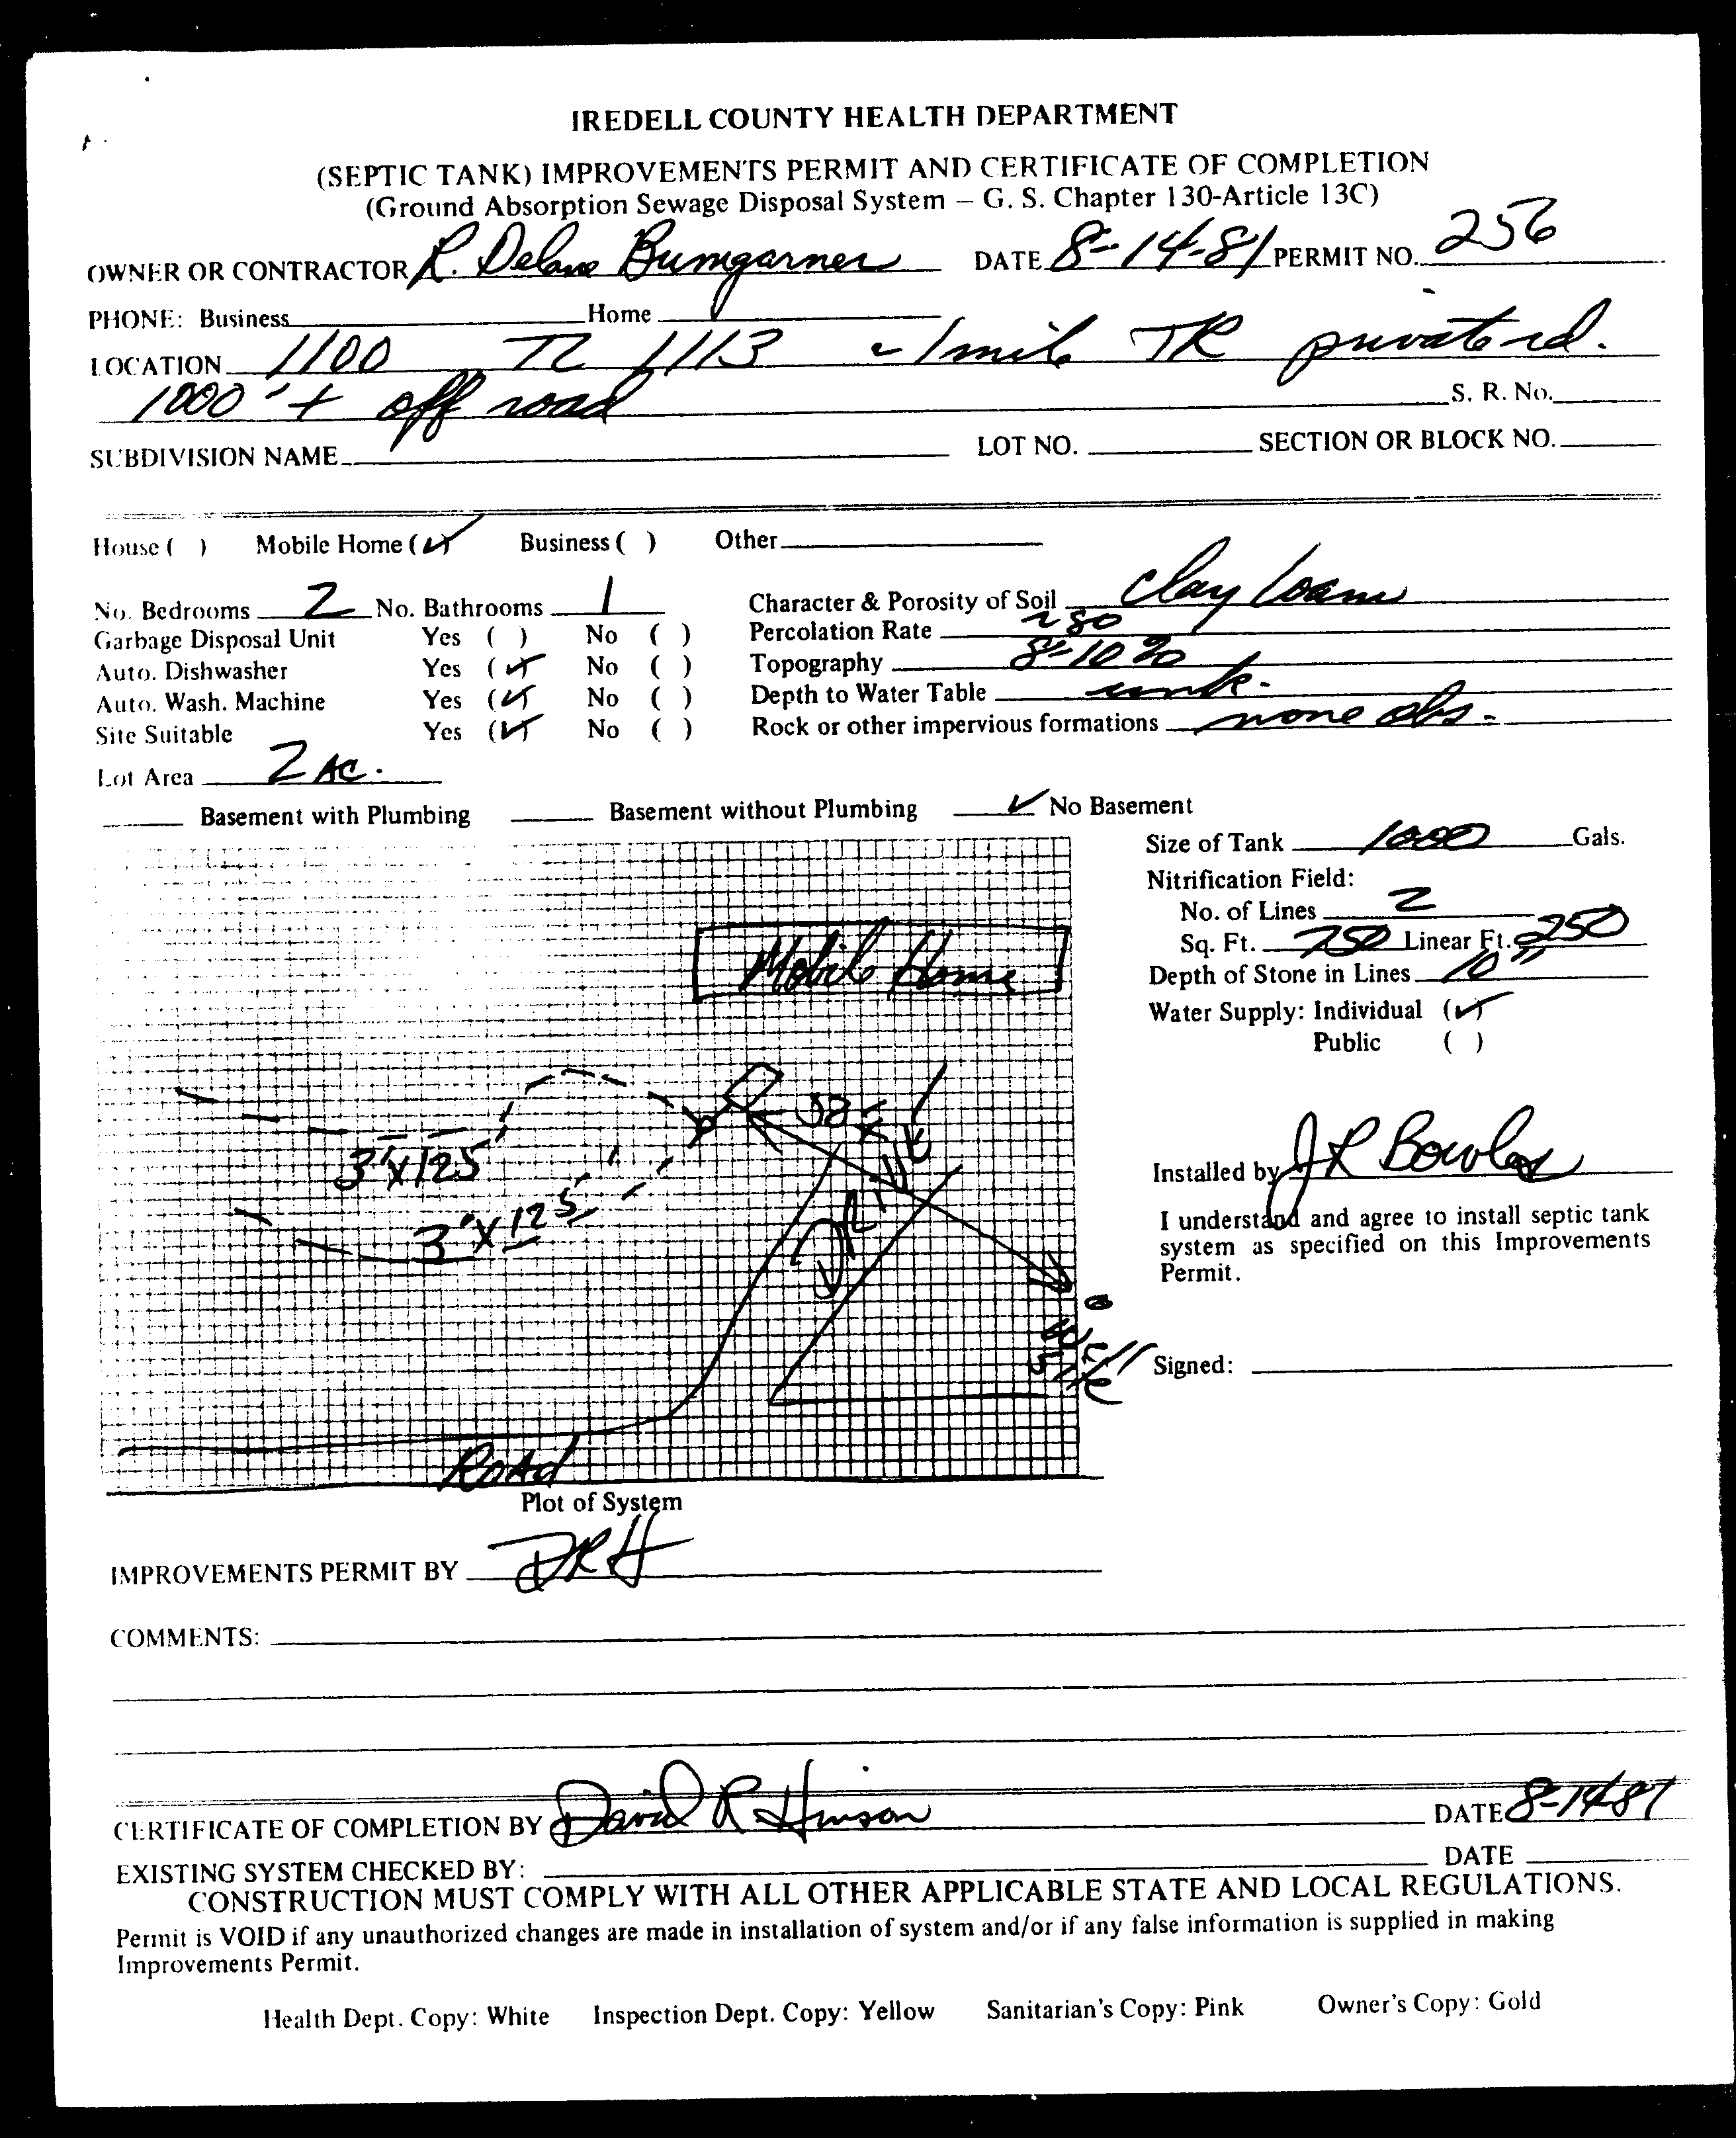 IREDELL COUNTY HEALTH DEPARTMENT
(SEPTIC TANK) IMPROVEMENTS PERMIT AND CERTIFICATE OF COMPLETION
(Ground Absorption Sewage Disposal System – G. S. Chapter 130-Article 13C)
OWNER OR CONTRACTOR R. Delano Bumgarner DATE 8-14-81 PERMIT NO. 256
PHONE: Business Home
LOCATION 1100 TL 1113 ~ 1 mile TR private rd.
1000' + off road S. R. No.
SUBDIVISION NAME LOT NO. SECTION OR BLOCK NO.
House ( ) Mobile Home (✓) Business ( ) Other
No. Bedrooms 2 No. Bathrooms 1 Character & Porosity of Soil Clay Loam
Garbage Disposal Unit Yes ( ) No ( ) Percolation Rate ~80
Auto. Dishwasher Yes (✓) No ( ) Topography 8-10%
Auto. Wash. Machine Yes (✓) No ( ) Depth to Water Table unk.
Site Suitable Yes (✓) No ( ) Rock or other impervious formations none obs.
Lot Area 2 AC.
Basement with Plumbing Basement without Plumbing ✓ No Basement
Size of Tank 1000 Gals.
Nitrification Field:
No. of Lines 2
Sq. Ft. 750 Linear Ft. 250
Depth of Stone in Lines 10"
Water Supply: Individual (✓)
Public ( )
Mobile Home
3'x125
3'x125
Well
Site
Road
Installed by J R Bowles
I understand and agree to install septic tank
system as specified on this Improvements
Permit.
Signed:
Plot of System
IMPROVEMENTS PERMIT BY DRH
COMMENTS:
CERTIFICATE OF COMPLETION BY David R Hinson DATE 8-14-81
EXISTING SYSTEM CHECKED BY: DATE
CONSTRUCTION MUST COMPLY WITH ALL OTHER APPLICABLE STATE AND LOCAL REGULATIONS.
Permit is VOID if any unauthorized changes are made in installation of system and/or if any false information is supplied in making
Improvements Permit.
Health Dept. Copy: White Inspection Dept. Copy: Yellow Sanitarian's Copy: Pink Owner's Copy: Gold